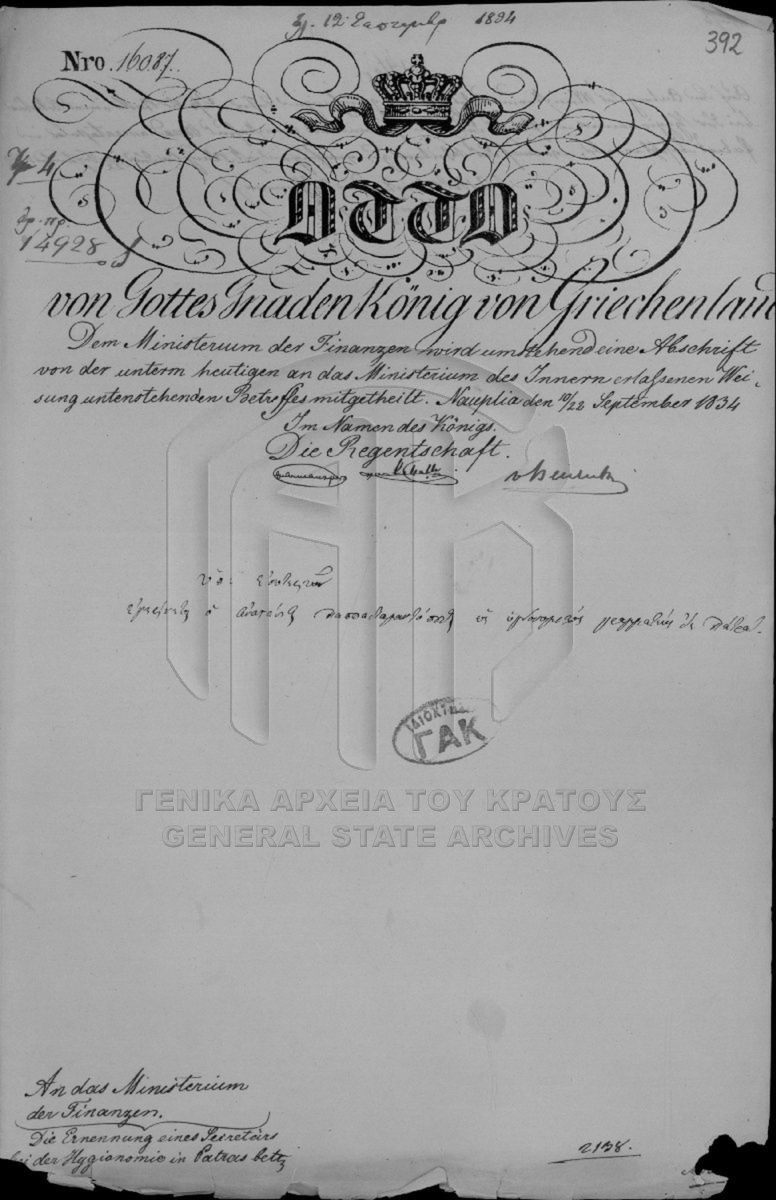 12 1834
392
Nro. 16087.
4
14928
OTTO
von Gottes Gnaden König von Griechenland
Dem Ministerium der Finanzen wird umstehend eine Abschrift
von der unterm heutigen an das Ministerium des Innern erlaßenen Wei-
sung untenstehenden Betreffes mitgetheilt. Nauplia den 10/22 September 1834
Im Namen des Königs.
Die Regentschaft.
ΓΑΚ
ΓΕΝΙΚΑ ΑΡΧΕΙΑ ΤΟΥ ΚΡΑΤΟΥΣ
GENERAL STATE ARCHIVES
An das Ministerium
der Finanzen.
Die Ernennung eines Secretairs
bei der Hygionomie in Patras betr
2138.